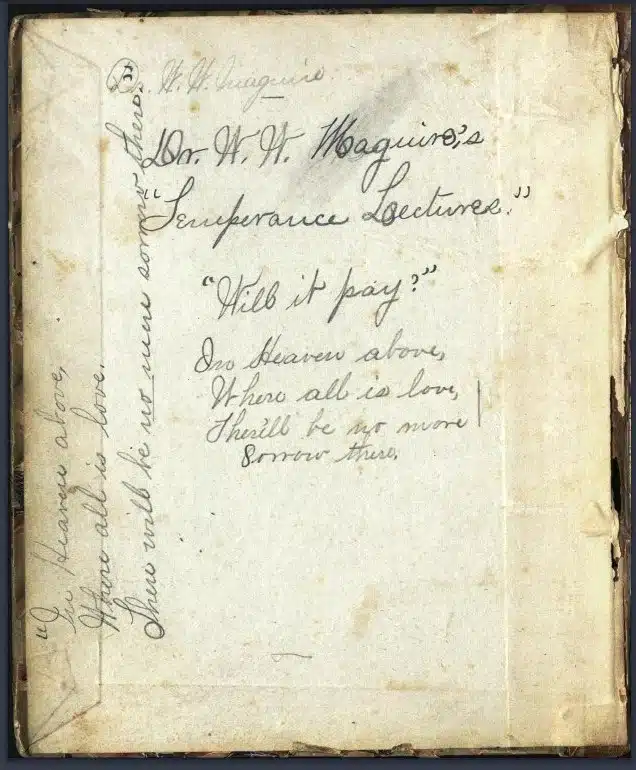 Dr. W. W. Maguire.
Dr. W. W. Maguire's
"Temperance Lectures."
"Will it pay?"
In Heaven above,
Where all is love,
There'll be no more
Sorrow there.
"In Heaven above,
Where all is love.
There will be no more sorrow there."